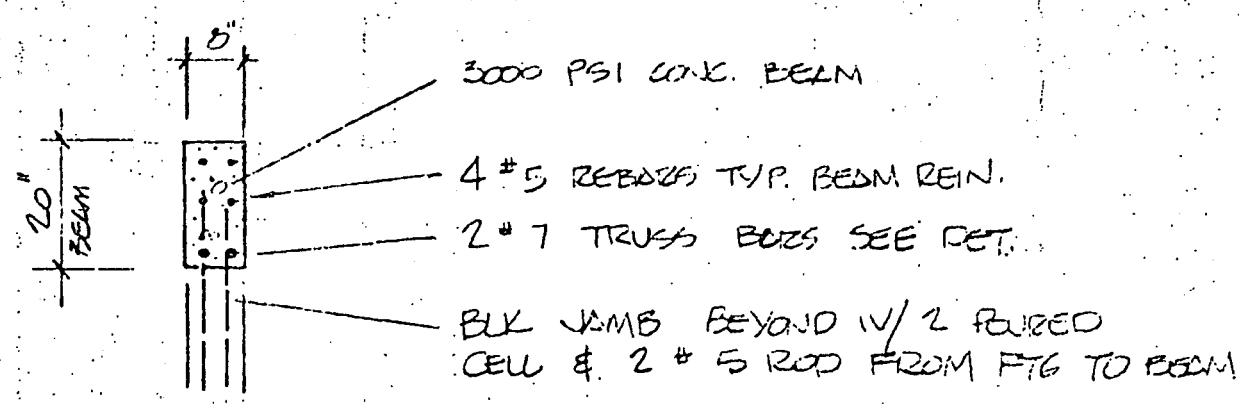 8"
3000 PSI CONC. BEAM
20"
BEAM
4 #5 REBARS TYP. BEAM REIN.
2 #7 TRUSS BARS SEE DET.
BLK JAMB BEYOND W/ 2 POURED
CELL & 2 #5 ROD FROM FTG TO BEAM